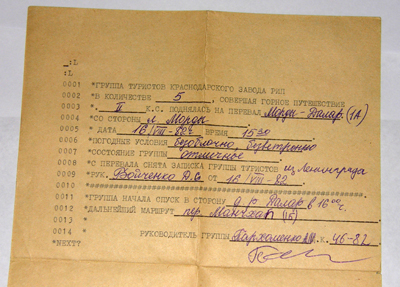 :L
:L
0001 *ГРУППА ТУРИСТОВ КРАСНОДАРСКОГО ЗАВОДА РИП
0002 *В КОЛИЧЕСТВЕ 5, СОВЕРШАЯ ГОРНОЕ ПУТЕШЕСТВИЕ
0003 *. II К.С. ПОДНЯЛАСЬ НА ПЕРЕВАЛ Морды-Далар (1А)
0004 *СО СТОРОНЫ л. Морды
0005 * ДАТА 16/VIII-82г ВРЕМЯ 15 30
0006 *ПОГОДНЫЕ УСЛОВИЯ безоблачно, безветренно
0007 *СОСТОЯНИЕ ГРУППЫ отличное
0008 *С ПЕРЕВАЛА СНЯТА ЗАПИСКА ГРУППЫ ТУРИСТОВ из Ленинграда
0009 *РУК. Войченко ОТ 16/VIII-82
0010
0011 *ГРУППА НАЧАЛА СПУСК В СТОРОНУ Далар в 16 00ч.
0012 *ДАЛЬНЕЙШИЙ МАРШРУТ пер.
0013 *
0014 * РУКОВОДИТЕЛЬ ГРУППЫ Пархоменко М.К. 46-82
*NEXT?